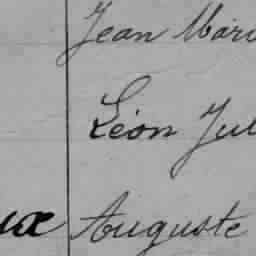 Jean Mari
Léon Jul
ux Auguste